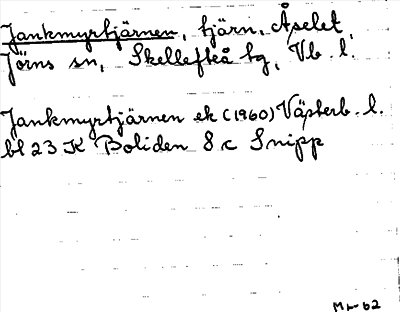 Jankmyrtjärnen, tjärn, Åselet,
Jörns sn, Skellefteå tg, Vb. l.
Jankmyrtjärnen ek (1960) Västerb. l.
bl 23 K Boliden 8 c Snipp
Mr-62